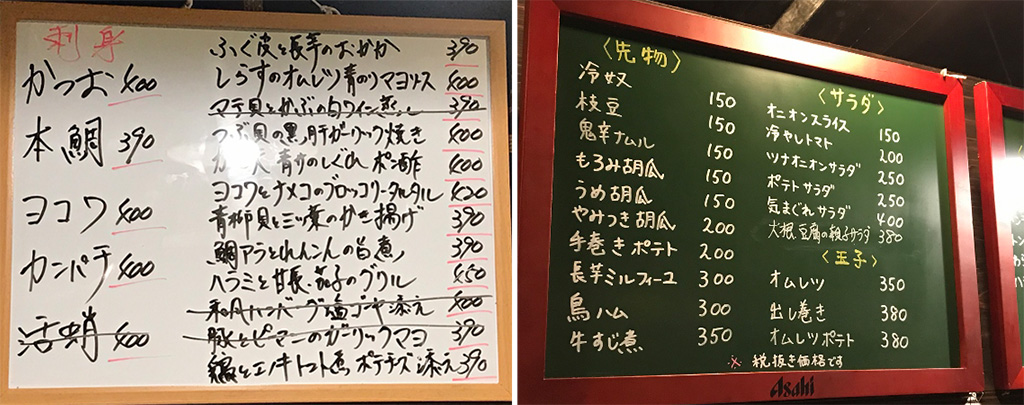 刺身
かつお 400
本鯛 390
ヨコワ 400
カンパチ 400
活蛸 400
ふぐ皮と長芋のおかか 390
しらすのオムレツ青のりマヨソース 400
マテ貝とかぶの白ワイン蒸し 390
つぶ貝の黒肝ガーリック焼き 400
ポン酢 400
ヨコワとナメコのブロッコリータルタル 420
青柳貝と三ツ葉のかき揚げ 390
鯛アラとれんこんの旨煮 390
ハラミと甘長、茄子のグリル 450
ハンバーグ塩ゴーヤ添え 400
豚とピーマンのガーリックマヨ 390
鶏とエノキトマト煮 ポテチーズ添え 390
〈先物〉
冷奴 150
枝豆 150
鬼辛ナムル 150
もろみ胡瓜 150
うめ胡瓜 200
やみつき胡瓜 200
手巻きポテト 200
長芋ミルフィーユ 300
鳥ハム 300
牛すじ煮 350
〈サラダ〉
オニオンスライス 150
冷やしトマト 200
ツナオニオンサラダ 250
ポテトサラダ 250
気まぐれサラダ 400
大根、豆腐の親子サラダ 380
〈玉子〉
オムレツ 350
出し巻き 380
オムレツポテト 380
※ 税抜き価格です
Asahi